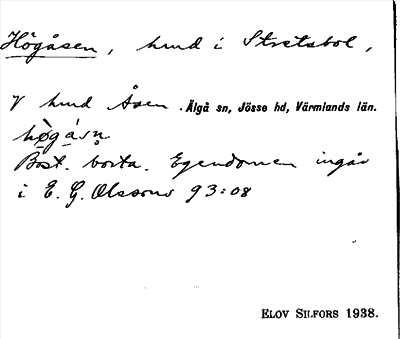 Högåsen, hmd i Stretsbol,
V hmd Åsen. Älgå sn, Jösse hd, Värmlands län.
hø̀gásn̥
Bost. borta. Egendomen ingår
i E. G. Olssons 93:08
ELOV SILFORS 1938.